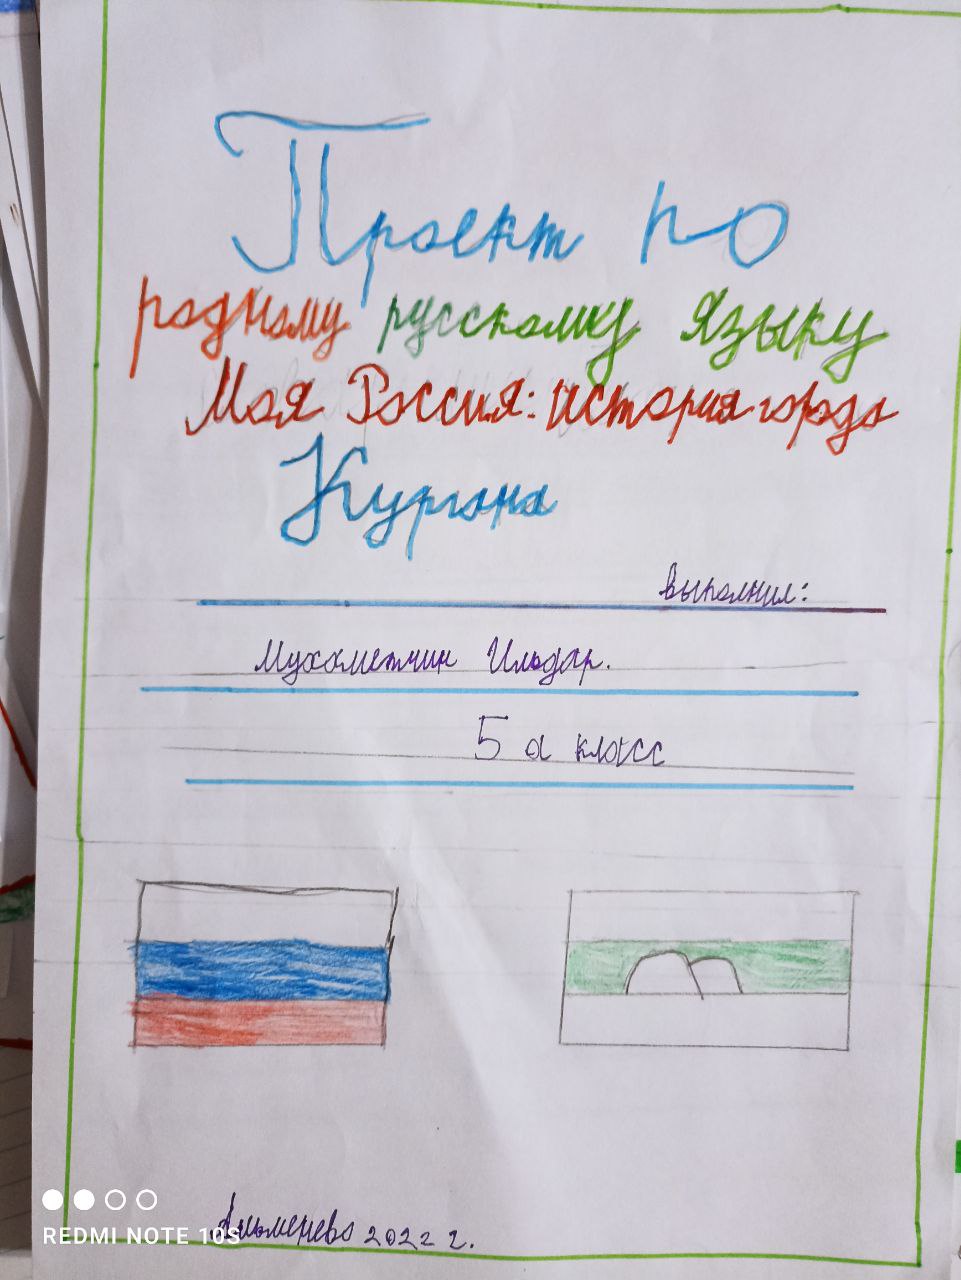 Проект по
родному русскому языку
Моя Россия: история города
Кургана
выполнил:
Мухаметчин Ильдар.
5 а класс
Альменево 2022 г.
REDMI NOTE 10S